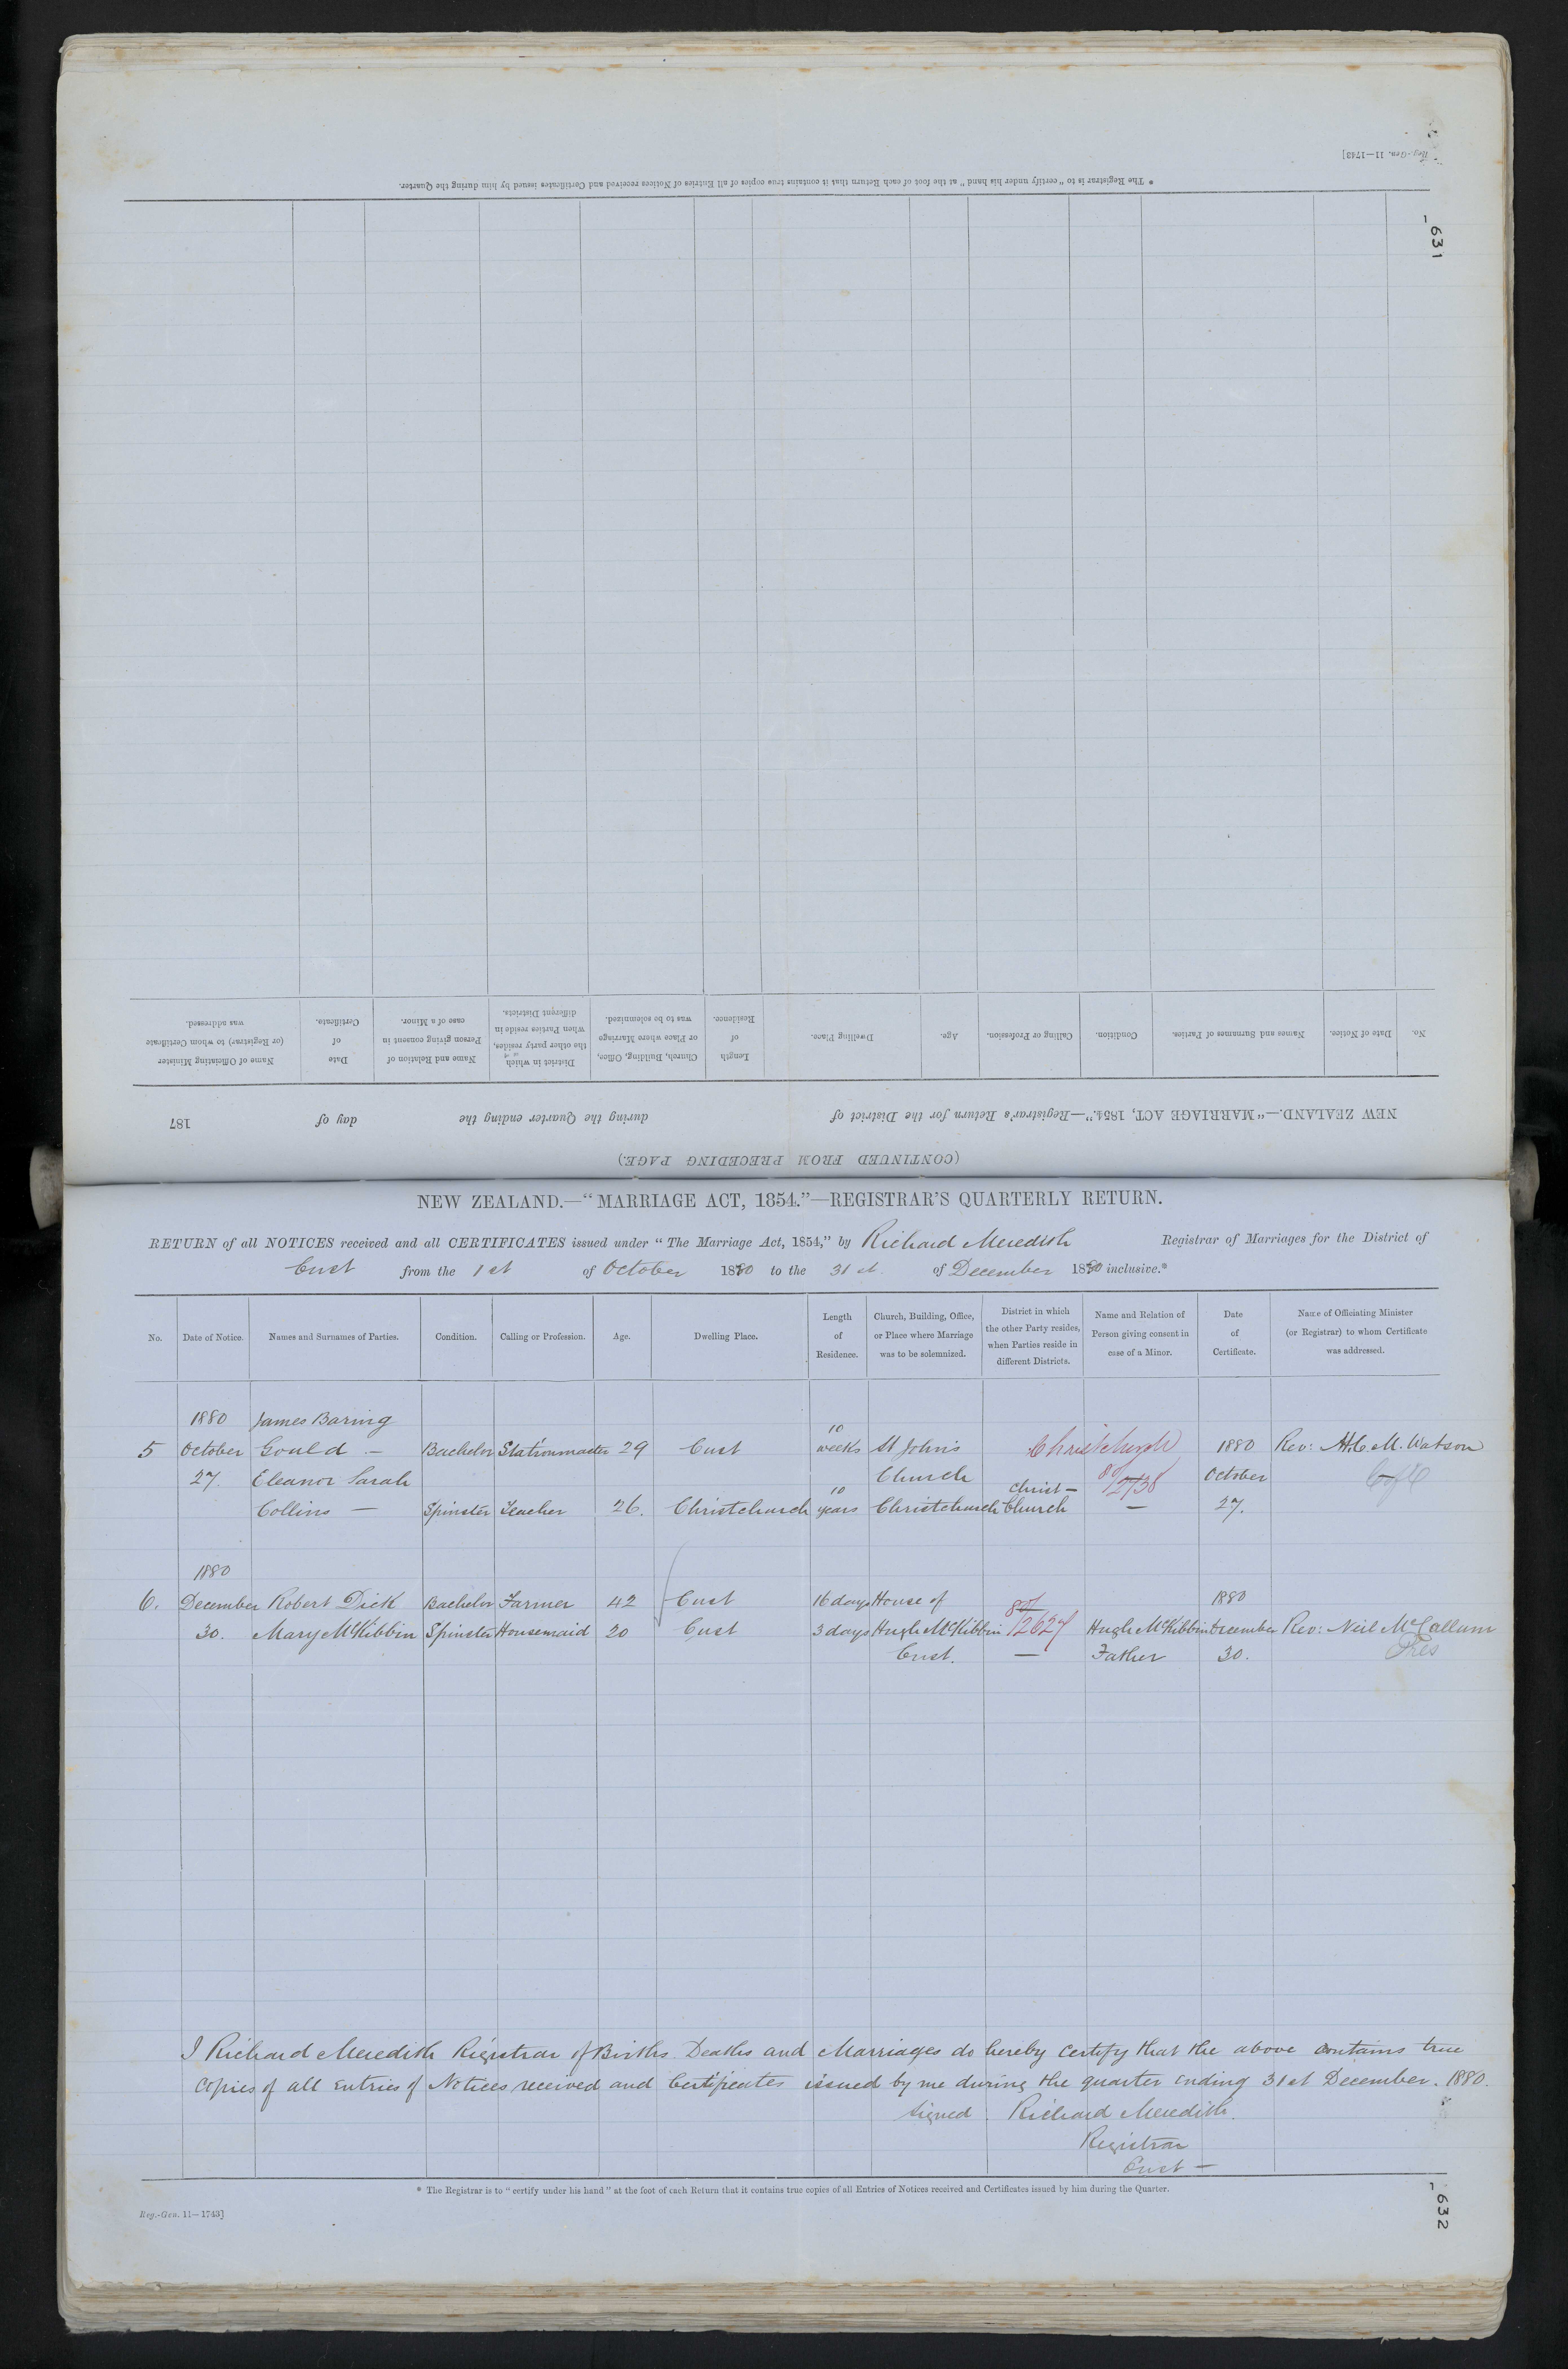 Reg.-Gen. 11—1743]
* The Registrar is to "certify under his hand" at the foot of each Return that it contains true copies of all Entries of Notices received and Certificates issued by him during the Quarter.
-631
No.
Date of Notice.
Names and Surnames of Parties.
Condition.
Calling or Profession.
Age.
Dwelling Place.
Length of Residence.
Church, Building, Office, or Place where Marriage was to be solemnized.
District in which the other party resides, when Parties reside in different Districts.
Name and Relation of Person giving consent in case of a Minor.
Date of Certificate.
Name of Officiating Minister (or Registrar) to whom Certificate was addressed.
NEW ZEALAND.—"MARRIAGE ACT, 1854."—Registrar's Return for the District of during the Quarter ending the day of 187
(CONTINUED FROM PRECEDING PAGE.)
NEW ZEALAND.—"MARRIAGE ACT, 1854."—REGISTRAR'S QUARTERLY RETURN.
RETURN of all NOTICES received and all CERTIFICATES issued under "The Marriage Act, 1854," by Richard Meredith Registrar of Marriages for the District of
Cust from the 1st of October 1880 to the 31st of December 1880 inclusive.*
No.
Date of Notice.
Names and Surnames of Parties.
Condition.
Calling or Profession.
Age.
Dwelling Place.
Length of Residence.
Church, Building, Office, or Place where Marriage was to be solemnized.
District in which the other Party resides, when Parties reside in different Districts.
Name and Relation of Person giving consent in case of a Minor.
Date of Certificate.
Name of Officiating Minister (or Registrar) to whom Certificate was addressed.
1880 James Baring 10
5 October Gould — Bachelor Stationmaster 29 Cust weeks St John's Christchurch 1880 Rev: H.C.M. Watson
27. Eleanor Sarah Church 80/2738 October C of E
Collins — Spinster Teacher 26. Christchurch 10 years Christchurch Christ-Church — 27.
1880
6. December Robert Dick Bachelor Farmer 42 Cust 16 days House of 80/ 1880
30. Mary McKibbin Spinster Housemaid 20 Cust 3 days Hugh McKibbin /2627 Hugh McKibbin December Rev: Neil McCallum
Cust. — Father 30. Pres
I Richard Meredith Registrar of Births Deaths and Marriages do hereby certify that the above contains true
copies of all entries of Notices received and Certificates issued by me during the quarter ending 31st December. 1880.
signed. Richard Meredith.
Registrar
Cust —
* The Registrar is to "certify under his hand" at the foot of each Return that it contains true copies of all Entries of Notices received and Certificates issued by him during the Quarter.
Reg.-Gen. 11—1743]
-632